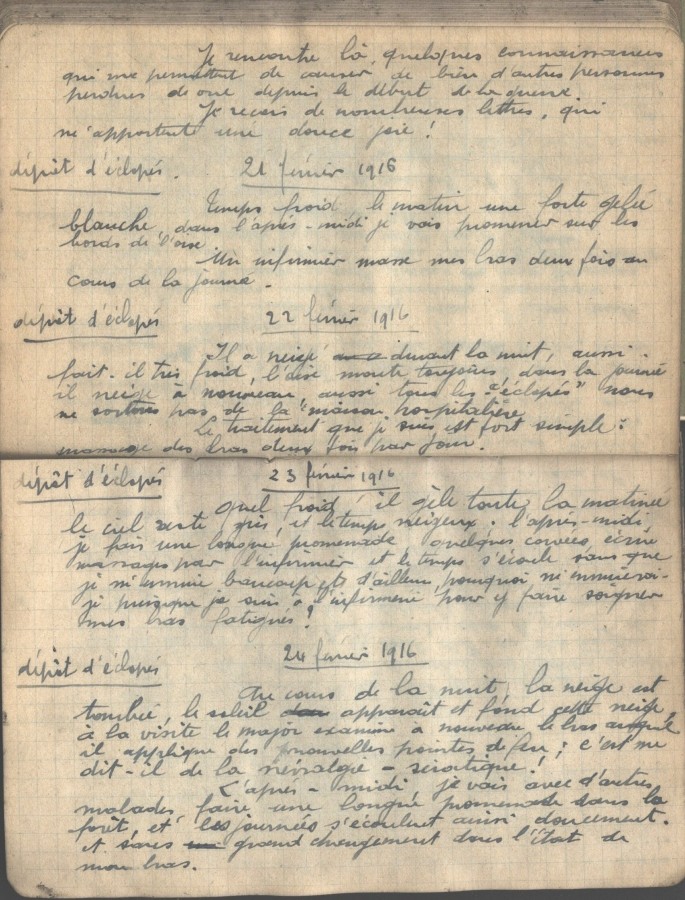 Je rencontre là, quelques connaissances
qui me permettent de causer de bien d'autres personnes
perdues de vue depuis le début de la guerre.
Je reçois de nombreuses lettres, qui
m'apportent une douce joie !
dépôt d'éclopés. 21 février 1916
Temps froid, le matin une forte gelée
blanche, dans l'après-midi je vais promener sur les
bords de l'oise
Un infirmier masse mes bras deux fois au
cours de la journée.
dépôt d'éclopés 22 février 1916
Il a neigé durant la nuit, aussi
fait-il très froid, l'oise monte toujours, dans la journée
il neige à nouveau, aussi tous les "éclopés" nous
ne sortons pas de la "maison hospitalière
Le traitement que je suis est fort simple :
massage des bras deux fois par jour.
dépôt d'éclopés 23 février 1916
Quel froid ! il gèle toute la matinée
le ciel reste gris, et le temps neigeux ; l'après-midi,
je fais une longue promenade quelques corvées,
massages par l'infirmier et le temps s'écoule sans que
je m'ennuie beaucoup, et d'ailleurs pourquoi m'ennuierai-
je puisque je suis à l'infirmerie pour y faire soigner
mes bras fatigués !
dépôt d'éclopés 24 février 1916
Au cours de la nuit, la neige est
tombée, le soleil apparaît et fond cette neige,
à la visite le major examine à nouveau le bras auquel
il applique des nouvelles pointes de feu ; c'est me
dit-il de la névralgie-sciatique !
L'après-midi je vais avec d'autres
malades faire une longue promenade dans la
forêt, et les journées s'écoulent ainsi doucement.
et sans grand changement dans l'état de
mon bras.